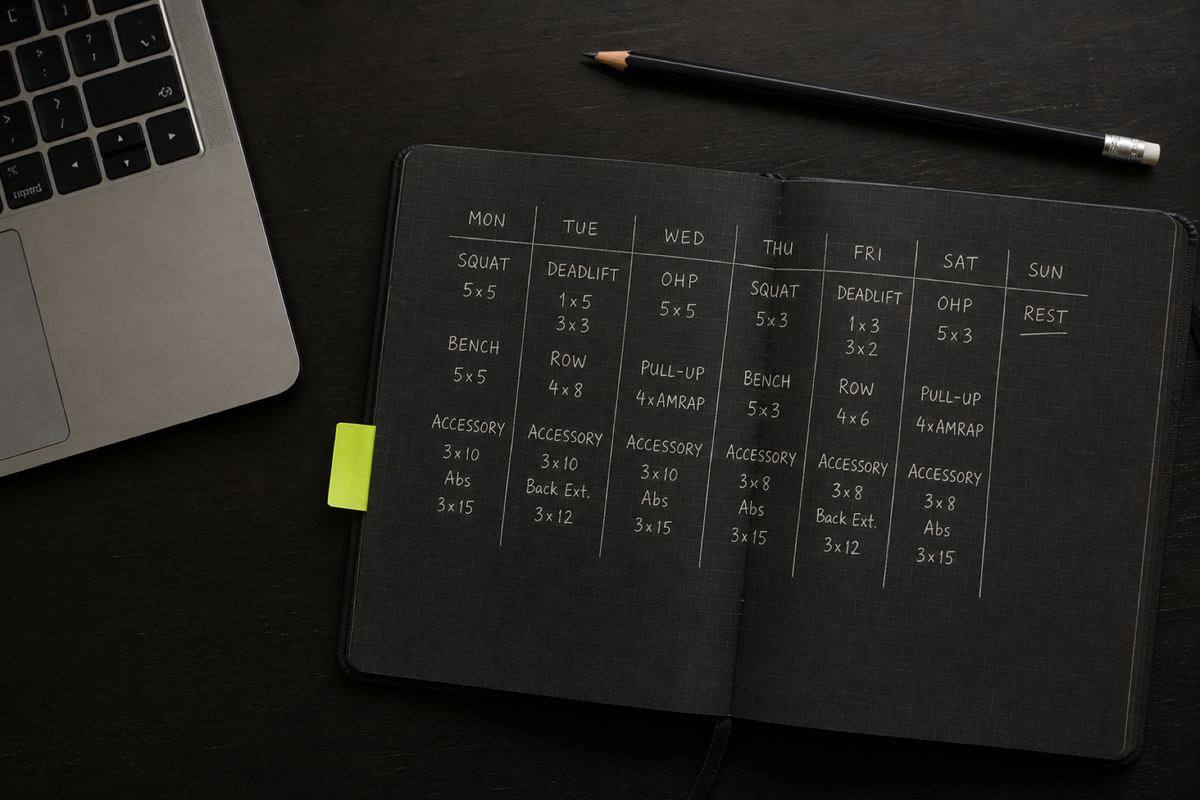 MON
SQUAT
5x5
BENCH
5x5
ACCESSORY
3x10
Abs
3x15
TUE
DEADLIFT
1x5
3x3
ROW
4x8
ACCESSORY
3x10
Back Ext.
3x12
WED
OHP
5x5
PULL-UP
4xAMRAP
ACCESSORY
3x10
Abs
3x15
THU
SQUAT
5x3
BENCH
5x3
ACCESSORY
3x8
Abs
3x15
FRI
DEADLIFT
1x3
3x2
ROW
4x6
ACCESSORY
3x8
Back Ext.
3x12
SAT
OHP
5x3
PULL-UP
4xAMRAP
ACCESSORY
3x8
Abs
3x15
SUN
REST